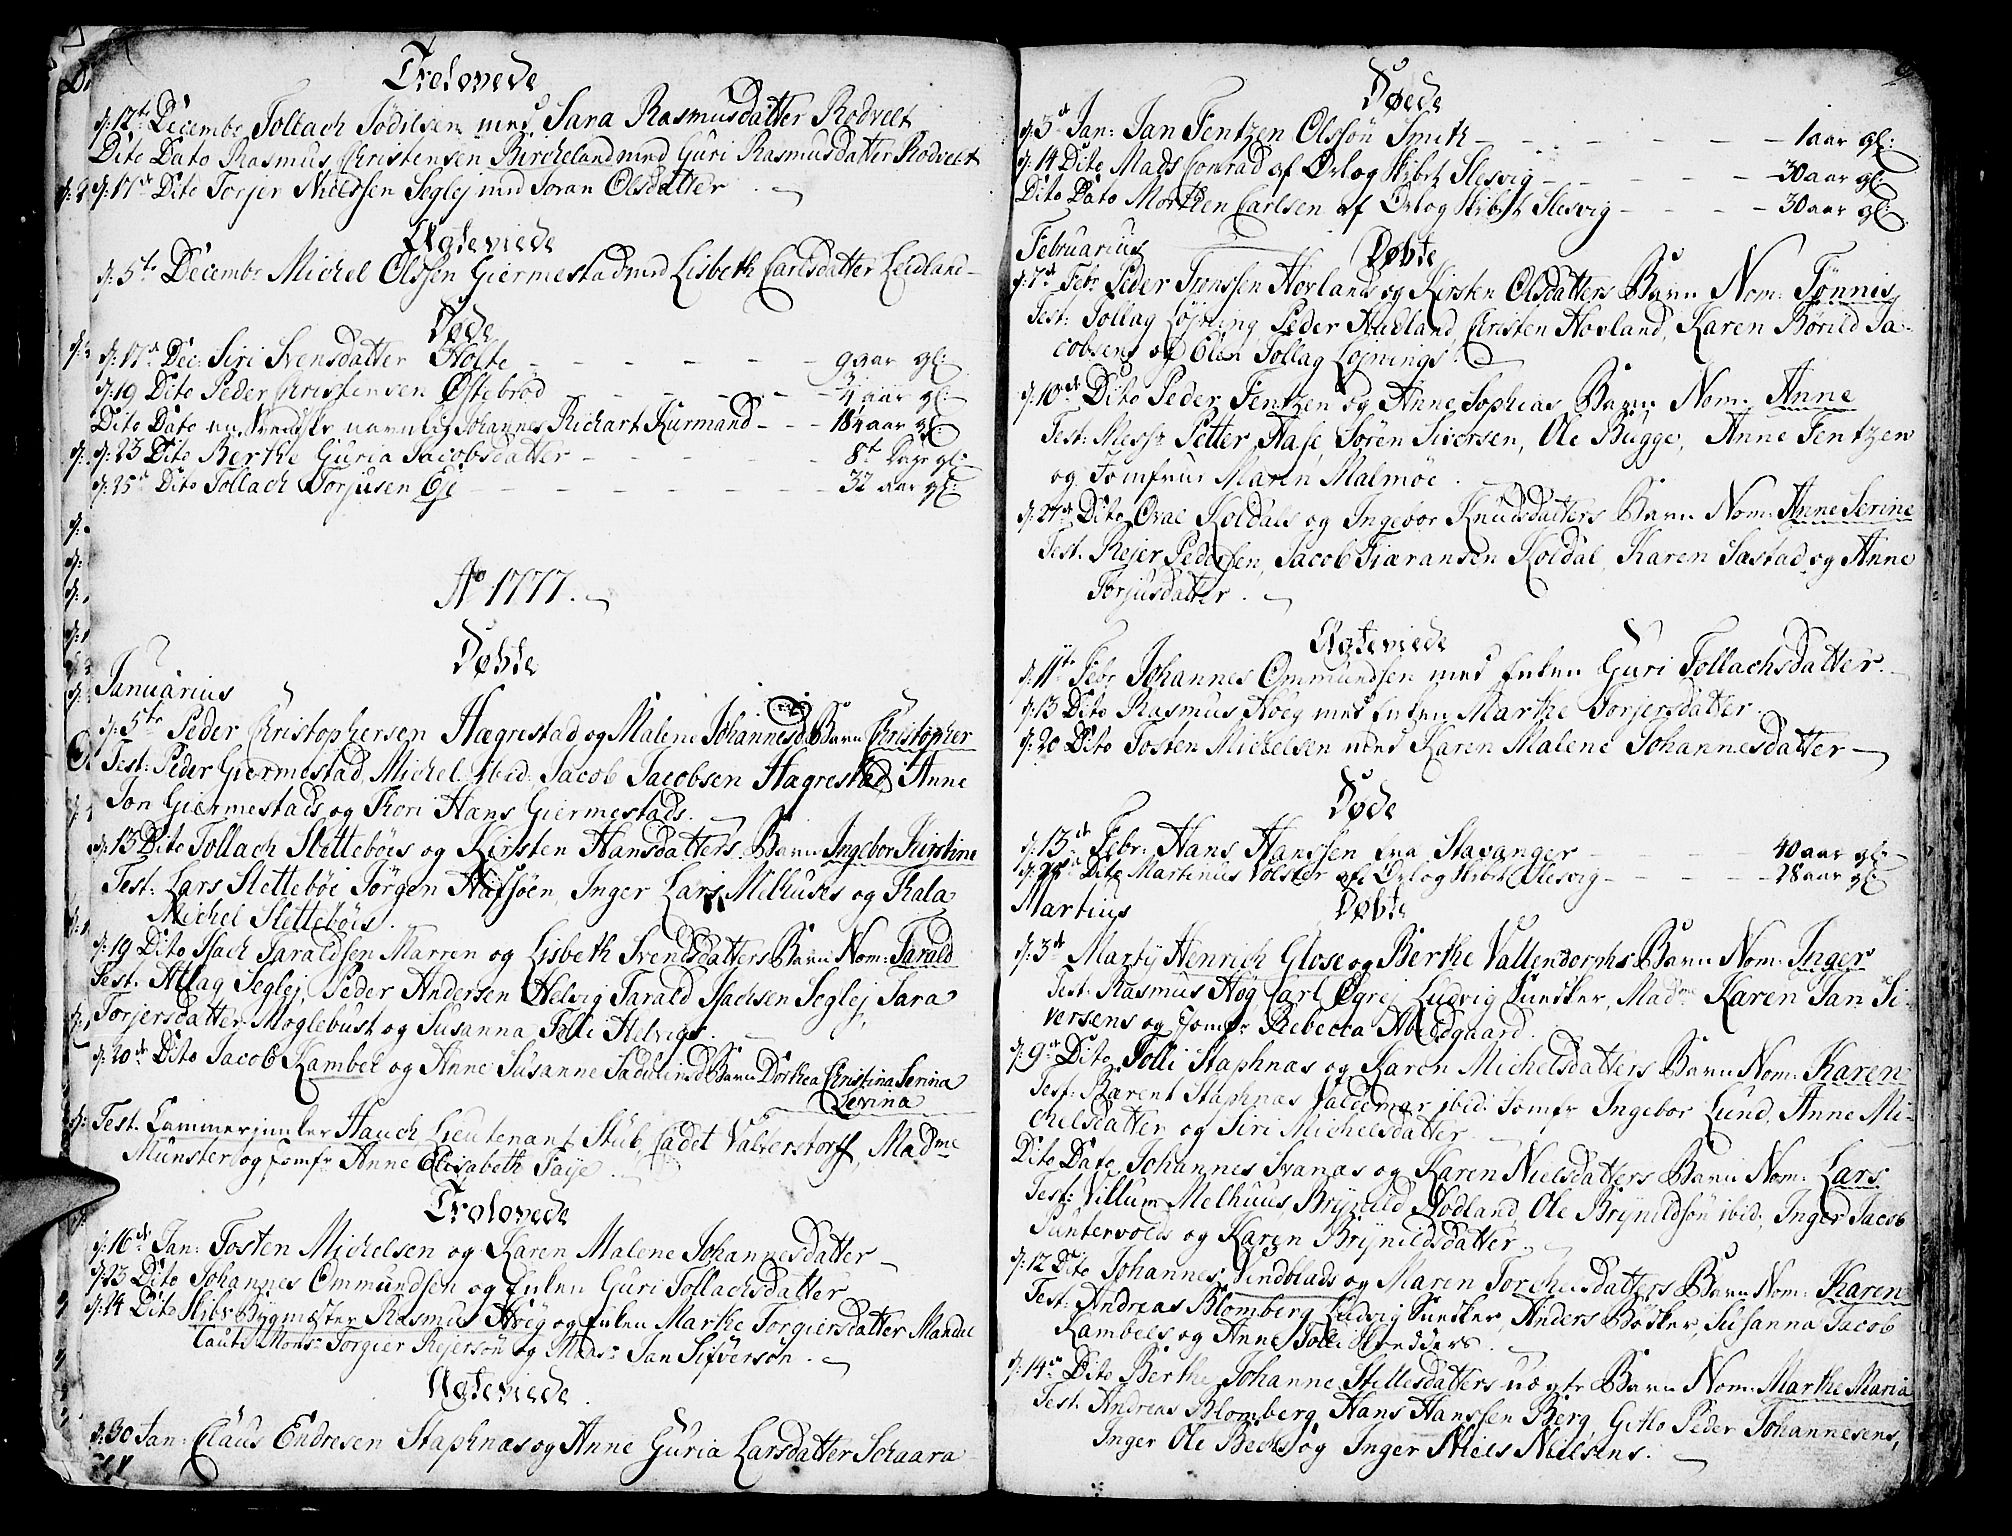 Trolovede
d: 12te Decembr Tollach Sødilsen med Sara Rasmusdatter Rodvelt
Dito Dato Rasmus Christensen Bircheland med Guri Rasmusdatter Rodvelt
d: 17de Dito Torjer Nielssen Seglej med Joran Olsdatter
Ægteviede
d: 5te Decembr Michel Olssøn Giermestad med Lisbeth Carlsdatter Leidland
Døde
d: 17de Dec: Siri Svensdatter Holte — 9 aar gl:
d: 19 Dito Peder Christensen Østebrød — aar gl:
Dito Dato en Svendsker navnlig Johannes Richart Kurmand — 18 aar gl:
d: 23 Dito Berthe Guria Jacobsdatter — 8te Dage gl:
d: 25de Dito Tollach Torjusen Eje — 32 aar gl:
Ao 1777.
Døbte
Januarius
d: 5te Peder Christophersen Hægrestad og Malene Johannesd: Barn Christopher
Test: Peder Giermestad, Michel ibid: Jacob Jacobsen Hægrestad Anne
Jon Giermestads og Thori Hans Giermestads.
d: 13 Dito Tollach Slettebøes og Kirsten Hansdatters Barn Ingebor Kirstine
Test: Lars Slettebøe Jørgen Hafsøen, Inger Lars Melhuses og Thala
Michel Slettebøes.
d: 19 Dito Isach Taraldsen Marren og Lisbeth Svendsdatters Barn Nom: Tarald
Test. Atlag Seglej, Peder Andersen Helvig Tarald Isachsen Seglej, Sara
Torjersdatter Moglebust og Susanna Tolli Helvigs.
d: 20de Dito Jacob Kambel og Anne Susanne Sadulind Barn Dorthea Christina Serina
Levina
Test. Cammerjunker Hauch Lieutenant Stub, Cadet Valterstorff, Madme
Munster og Jomfr Anne Elisabeth Faye.
Trolovede
d: 16de Jan: Tosten Michelsen og Karen Malene Johannesdatter
d: 23 Dito Johannes Ommundsen og Enken Guri Tollachsdatter
d: 24 Dito Skibs Bygmester Rasmus Hveg og Enken Marthe Torgiersdatter Mandal
Caut: Monsr Torgier Rejersøn og Mads: Jan Sifversøn.
Ægteviede.
d: 30 Jan: Claus Endresen Staphnas og Anne Guria Larsdatter Schaara
Døede
d: 3de Jan: Jan Fentzen Olssøn Smith — 1 aar gl:
d: 14 Dito Mads Conrad af Orlog Skibet Slesvig — 30 aar gl:
Dito Dato Morthen Carlsen af Orlog Skibet Slesvig — 30 aar gl:
Februarius
Døbte
d: 7de Febr Peder Tønssen Hovlands og Kirsten Olsdatters Barn Nom: Tønnis
Test: Tollag Løjning, Peder Hadland, Christen Hovland, Karen Børild Ja-
cobsens og Elen Tollag Løjnings.
d: 10de Dito Peder Fentzen og Anne Sophias Barn Nom. Anne
Test: Petter Hase, Søren Siversen, Ole Bugge, Anne Fentzen
og Jomfrue Maren Malmøe.
d: 27de Dito Ovae Koldals og Ingebor Knudsdatters Barn Nom: Anne Serine
Test. Rejer Pedersen, Jacob Tiæransen Koldal, Karen Sæstad og Anne
Torjusdatter.
Ægteviede
d: 11te Febr Johannes Ommundsen med Enken Guri Tollachsdatter.
d: 13 Dito Rasmus Hveg med Enken Marthe Torjersdatter
d: 20 Dito Tosten Michelsen med Karen Malene Johannesdatter
Døde
d: 13de Febr: Hans Hanssen fra Stavanger — 40 aar gl:
Dito Martinus Volster af Orlog Skibet Slesvig — 28 aar gl:
Martius
Døbte
d: 3de Martij Henrich Glose og Berthe Vallendorphs Barn Nom: Inger
Test: Rasmus Hog, Carl Øgrej, Ludvig Sundker, Madme Karen Jan Si-
versens og Jomfr Rebecca Abildgaard.
d: 9de Dito Tolli Staphnas og Karen Michelsdatters Barn Nom: Karen
Test: Barent Staphnas Valdemar ibid: Jomfr Ingebor Lund, Anne Mi-
chelsdatter og Siri Michelsdatter.
Dito Dato Johannes Svanas og Karen Nielsdatters Barn Nom: Lars
Test: Villum Melhuus, Brynild Rødland, Ole Brynildsøn ibid; Inger Jacob
Puntervolds og Karen Brynildsdatter.
d: 12 Dito Johannes Lindblads og Maren Torchelsdatters Barn Nom: Karen
Test: Andreas Blomberg Ludvig Sundker, Anders Bødker, Susanna Jacob
Kambels og Anne Tolli Hvedders.
d: 14de Dito Berthe Johanne Stillesdatters uægte Barn Nom: Marthe Maria
Test: Andreas Blomberg Hans Hanssen Berg Gitlo Peder Johannesens,
Inger Ole Bechs og Inger Niels Nielsens.